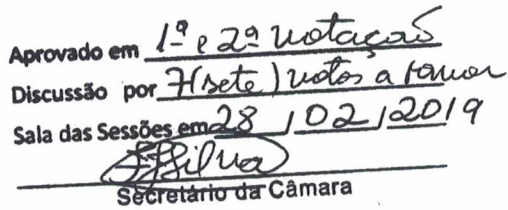 Aprovado em 1ª e 2ª votação
Discussão por 7(sete) votos a favor
Sala das Sessões em 28 / 02 / 2019
Silva
Secretário da Câmara